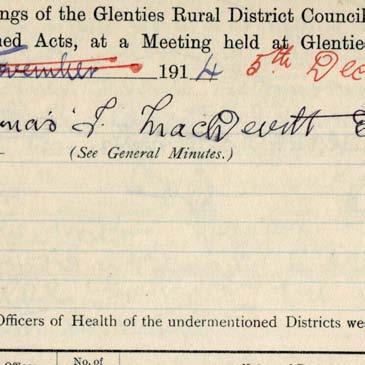 ngs of the Glenties Rural District Council
ned Acts, at a Meeting held at Glenties
ovember 1914 5th Dec
mas J. MacDevitt E
(See General Minutes.)
Officers of Health of the undermentioned Districts we
No. of